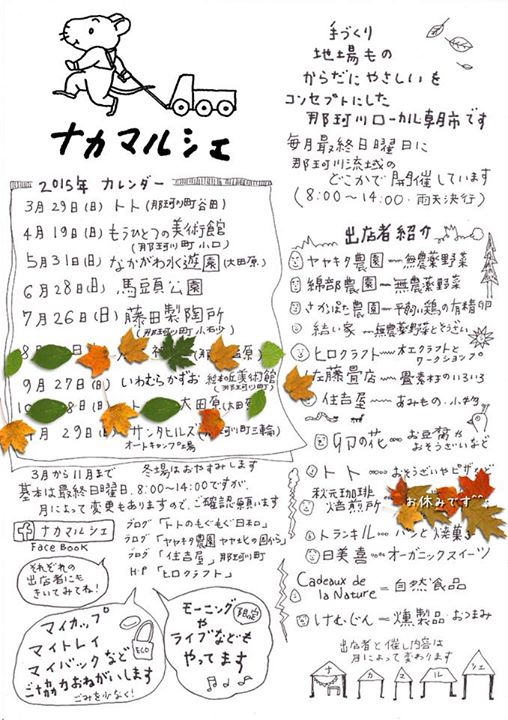 ナカマルシェ
手づくり
地場もの
からだにやさしいを
コンセプトにした
那珂川ローカル朝市です
毎月最終日曜日に
那珂川流域の
どこかで開催しています
(8:00〜14:00・雨天決行)
2015年 カレンダー
3月29日(日) トト(那珂川町谷田)
4月19日(日) もうひとつの美術館
(那珂川町小口)
5月31日(日) なかがわ水遊園(大田原)
6月28日(日) 馬頭公園
7月26日(日) 藤田製陶所
(那珂川町小砂)
8月
神
9月27日(日) いわむらかずお 絵本の丘美術館
(那珂川町)
10 8日(日) 大田原
29日(日) サンタヒルズ
オートキャンプ場
3月から11月まで 冬場はおやすみします
基本は最終日曜日、8:00〜14:00ですが、
月によって変更もありますので、ご確認願います
ナカマルシェ
Face Book
ブログ「トトのもぐもぐ日和」
ブログ「ヤヤキタ農園
ブログ「住吉屋」那珂川町
H・P「ヒロクラフト」
それぞれの
出店者にも
きいてみてね!
マイカップ
マイトレイ
マイバックなど
ご協力おねがいします
ごみを少なく!
ECO
モーニング
や
ライブなども
やってます
限定
出店者紹介
ヤヤキタ農園〜無農薬野菜
綿部農園〜無農薬野菜
さかばた農園〜平飼い鶏の有精卵
結い家〜無農薬野菜とぞうすい
ヒロクラフト〜木工クラフトと
ワークショップ
佐藤畳店〜畳素材のいろいろ
住吉屋〜あみもの、小物
卯の花〜お豆腐や
おそうざいなど
トト〜おそうざいやピザなど
秋元珈琲
焙煎所
お休みです^^;
トランキル〜パンと焼菓子
日美喜〜オーガニックスイーツ
Cadeaux de
la Nature=自然食品
けむじん=燻製品 おつまみ
出店者と催し内容は
月によって変わります
ナカマルシェ